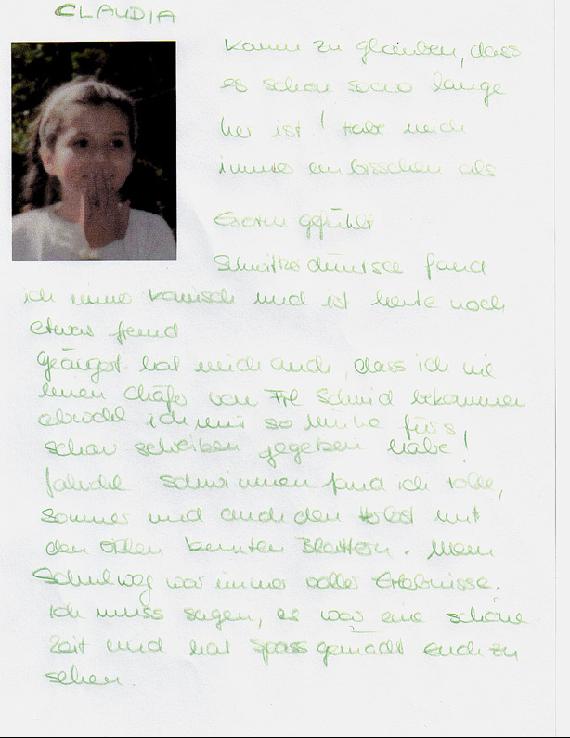 CLAUDIA
kaum zu glauben, dass
es schon sooo lange
her ist! Habe mich
immer ein bisschen als
gefühlt
fand
ich immer komisch und ist heute noch
etwas fremd
Geärgert hat mich auch, dass ich nie
einen Chäfer von Frl Schmid bekommen
obwohl ich mir so Mühe fürs
schön schreiben gegeben habe!
schwimmen fand ich tolle,
Sommer und auch den Herbst mit
den bunten Blättern. Mein
Schulweg war immer voller Erlebnisse.
Ich muss sagen, es war eine schöne
Zeit und hat spass gemacht euch zu
sehen.